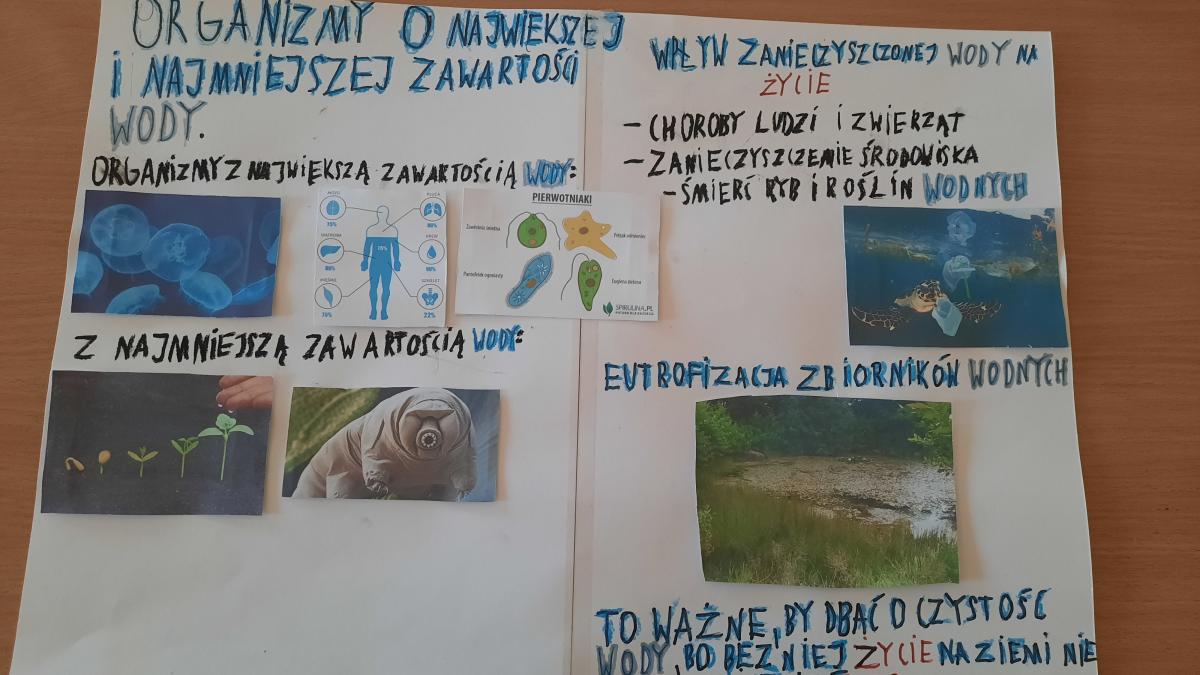 ORGANIZMY O NAJWIĘKSZEJ
I NAJMNIEJSZEJ ZAWARTOŚCI
WODY.
ORGANIZMY Z NAJWIĘKSZĄ ZAWARTOŚCIĄ WODY:
MÓZG
75%
PŁUCA
80%
WĄTROBA
86%
75%
KREW
90%
MIĘŚNIE
75%
SZKIELET
22%
PIERWOTNIAKI
Zawłotnia śnieżna
Pełzak odmieniec
Pantofelek ogoniasty
Euglena zielona
SPIRULINA.PL
Z NAJMNIEJSZĄ ZAWARTOŚCIĄ WODY:
WPŁYW ZANIECZYSZCZONEJ WODY NA
ŻYCIE
- CHOROBY LUDZI I ZWIERZĄT
- ZANIECZYSZCZENIE ŚRODOWISKA
- ŚMIERĆ RYB I ROŚLIN WODNYCH
EUTROFIZACJA ZBIORNIKÓW WODNYCH
TO WAŻNE, BY DBAĆ O CZYSTOŚĆ
WODY, BO BEZ NIEJ ŻYCIE NA ZIEMI NIE